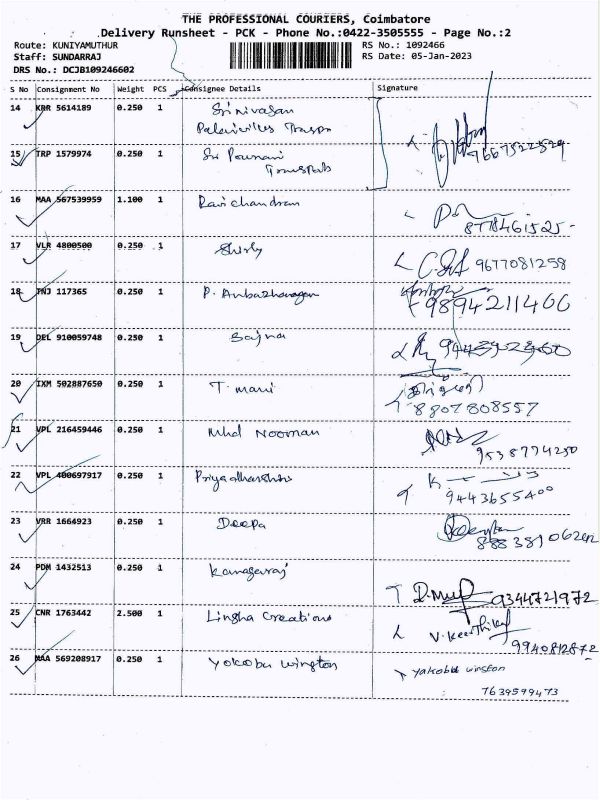 THE PROFESSIONAL COURIERS, Coimbatore
Delivery Runsheet - PCK - Phone No.:0422-3505555 - Page No.:2
Route: KUNIYAMUTHUR
RS No.: 1092466
Staff: SUNDARRAJ
RS Date: 05-Jan-2023
DRS No.: DCJB109246602
S No Consignment No Weight PCS Consignee Details Signature
14 KRR 5614189 0.250 1 Srinivasan
15 TRP 1579974 0.250 1 Sri Pournami
9667522529
16 MAA 567539959 1.100 1 Ravichandran
8778461525
17 VLR 4800500 0.250 1 Shirly 9677081258
18 TNJ 117365 0.250 1 P. Anbazhagan 9894211466
19 DEL 910059748 0.250 1 Sajna
20 IXM 502887650 0.250 1 T. mani
8807808557
21 VPL 216459446 0.250 1 Mhd Nooman
9538774250
22 VPL 400697917 0.250 1 Priyadharshini
9443655400
23 VRR 1664923 0.250 1 Deepa
24 PDM 1432513 0.250 1 Kanagaraj
9344721972
25 CNR 1763442 2.500 1 Lingha Creations
V. Keerthika
9940812872
26 MAA 569208917 0.250 1 Yokobu Wington yakobu winston
7639599473